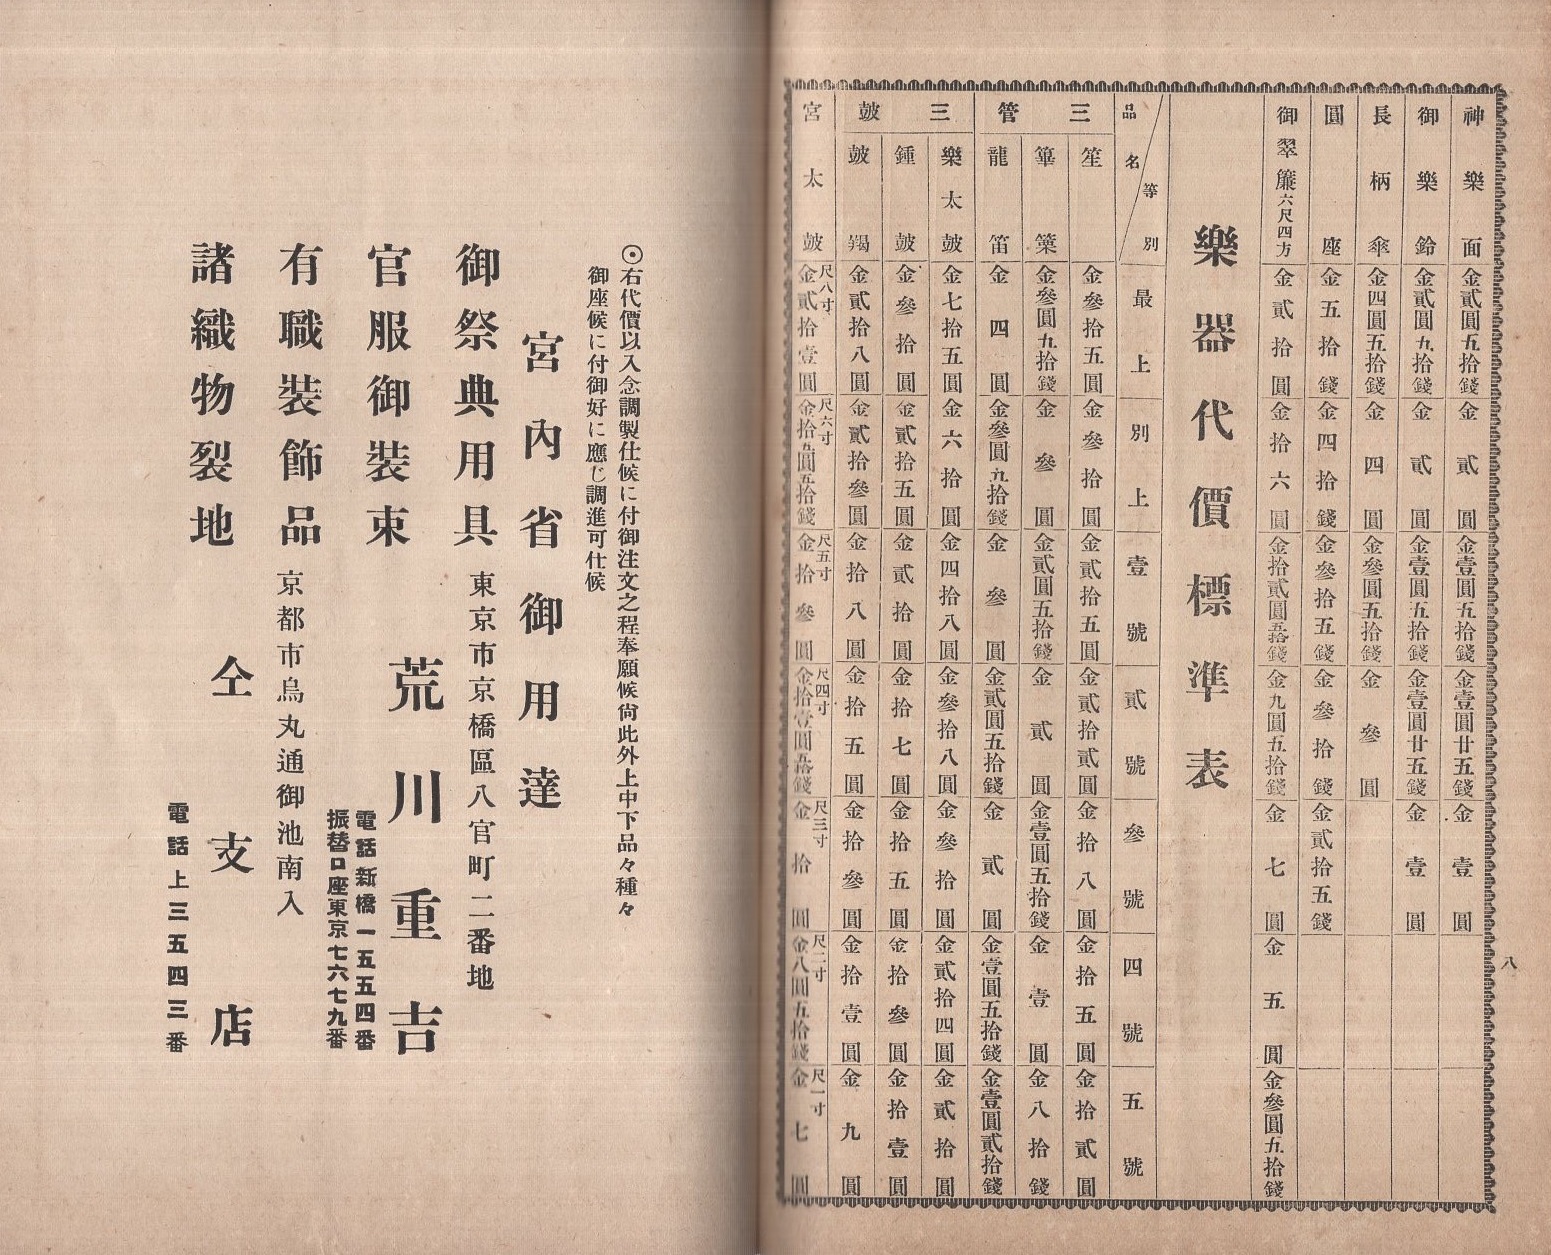 神樂面 金貳圓五拾錢 金貳圓 金壹圓五拾錢 金壹圓廿五錢 金壹圓
御樂鈴 金貳圓九拾錢 金貳圓 金壹圓五拾錢 金壹圓廿五錢 金壹圓
長柄傘 金四圓五拾錢 金四圓 金參圓五拾錢 金參圓
圓座 金五拾錢 金四拾錢 金參拾五錢 金參拾錢 金貳拾五錢
御翠簾六尺四方 金貳拾圓 金拾六圓 金拾貳圓五拾錢 金九圓五拾錢 金七圓 金五圓 金參圓五拾錢
樂器代價標準表
品名 等別 最上 別上 壹號 貳號 參號 四號 五號
三管
笙 金參拾五圓 金參拾圓 金貳拾五圓 金貳拾貳圓 金拾八圓 金拾五圓 金拾貳圓
篳篥 金參圓九拾錢 金參圓 金貳圓五拾錢 金貳圓 金壹圓五拾錢 金壹圓 金八拾錢
龍笛 金四圓 金參圓九拾錢 金參圓 金貳圓五拾錢 金貳圓 金壹圓五拾錢 金壹圓貳拾錢
三皷
樂太皷 金七拾五圓 金六拾圓 金四拾八圓 金參拾八圓 金參拾圓 金貳拾四圓 金貳拾圓
鍾皷 金參拾圓 金貳拾五圓 金貳拾圓 金拾七圓 金拾五圓 金拾參圓 金拾壹圓
皷羯 金貳拾八圓 金貳拾參圓 金拾八圓 金拾五圓 金拾參圓 金拾壹圓 金九圓
宮太皷 尺八寸 金貳拾壹圓 尺六寸 金拾九圓五拾錢 尺五寸 金拾參圓 尺四寸 金拾壹圓五拾錢 尺三寸 金拾圓 尺二寸 金八圓五拾錢 尺一寸 金七圓
八
⊙右代價以入念調製仕候に付御注文之程奉願候尙此外上中下品々種々
御座候に付御好に應じ調進可仕候
宮內省御用達
御祭典用具
官服御裝束
有職裝飾品
諸織物裂地
東京市京橋區八官町二番地
荒川重吉
電話新橋一五五四番
振替口座東京七六七九番
京都市烏丸通御池南入
仝支店
電話上三五四三番